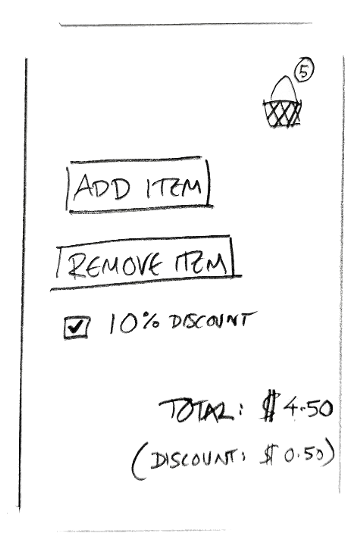 5
ADD ITEM
REMOVE ITEM
10% DISCOUNT
TOTAL: $4.50
(DISCOUNT: $0.50)